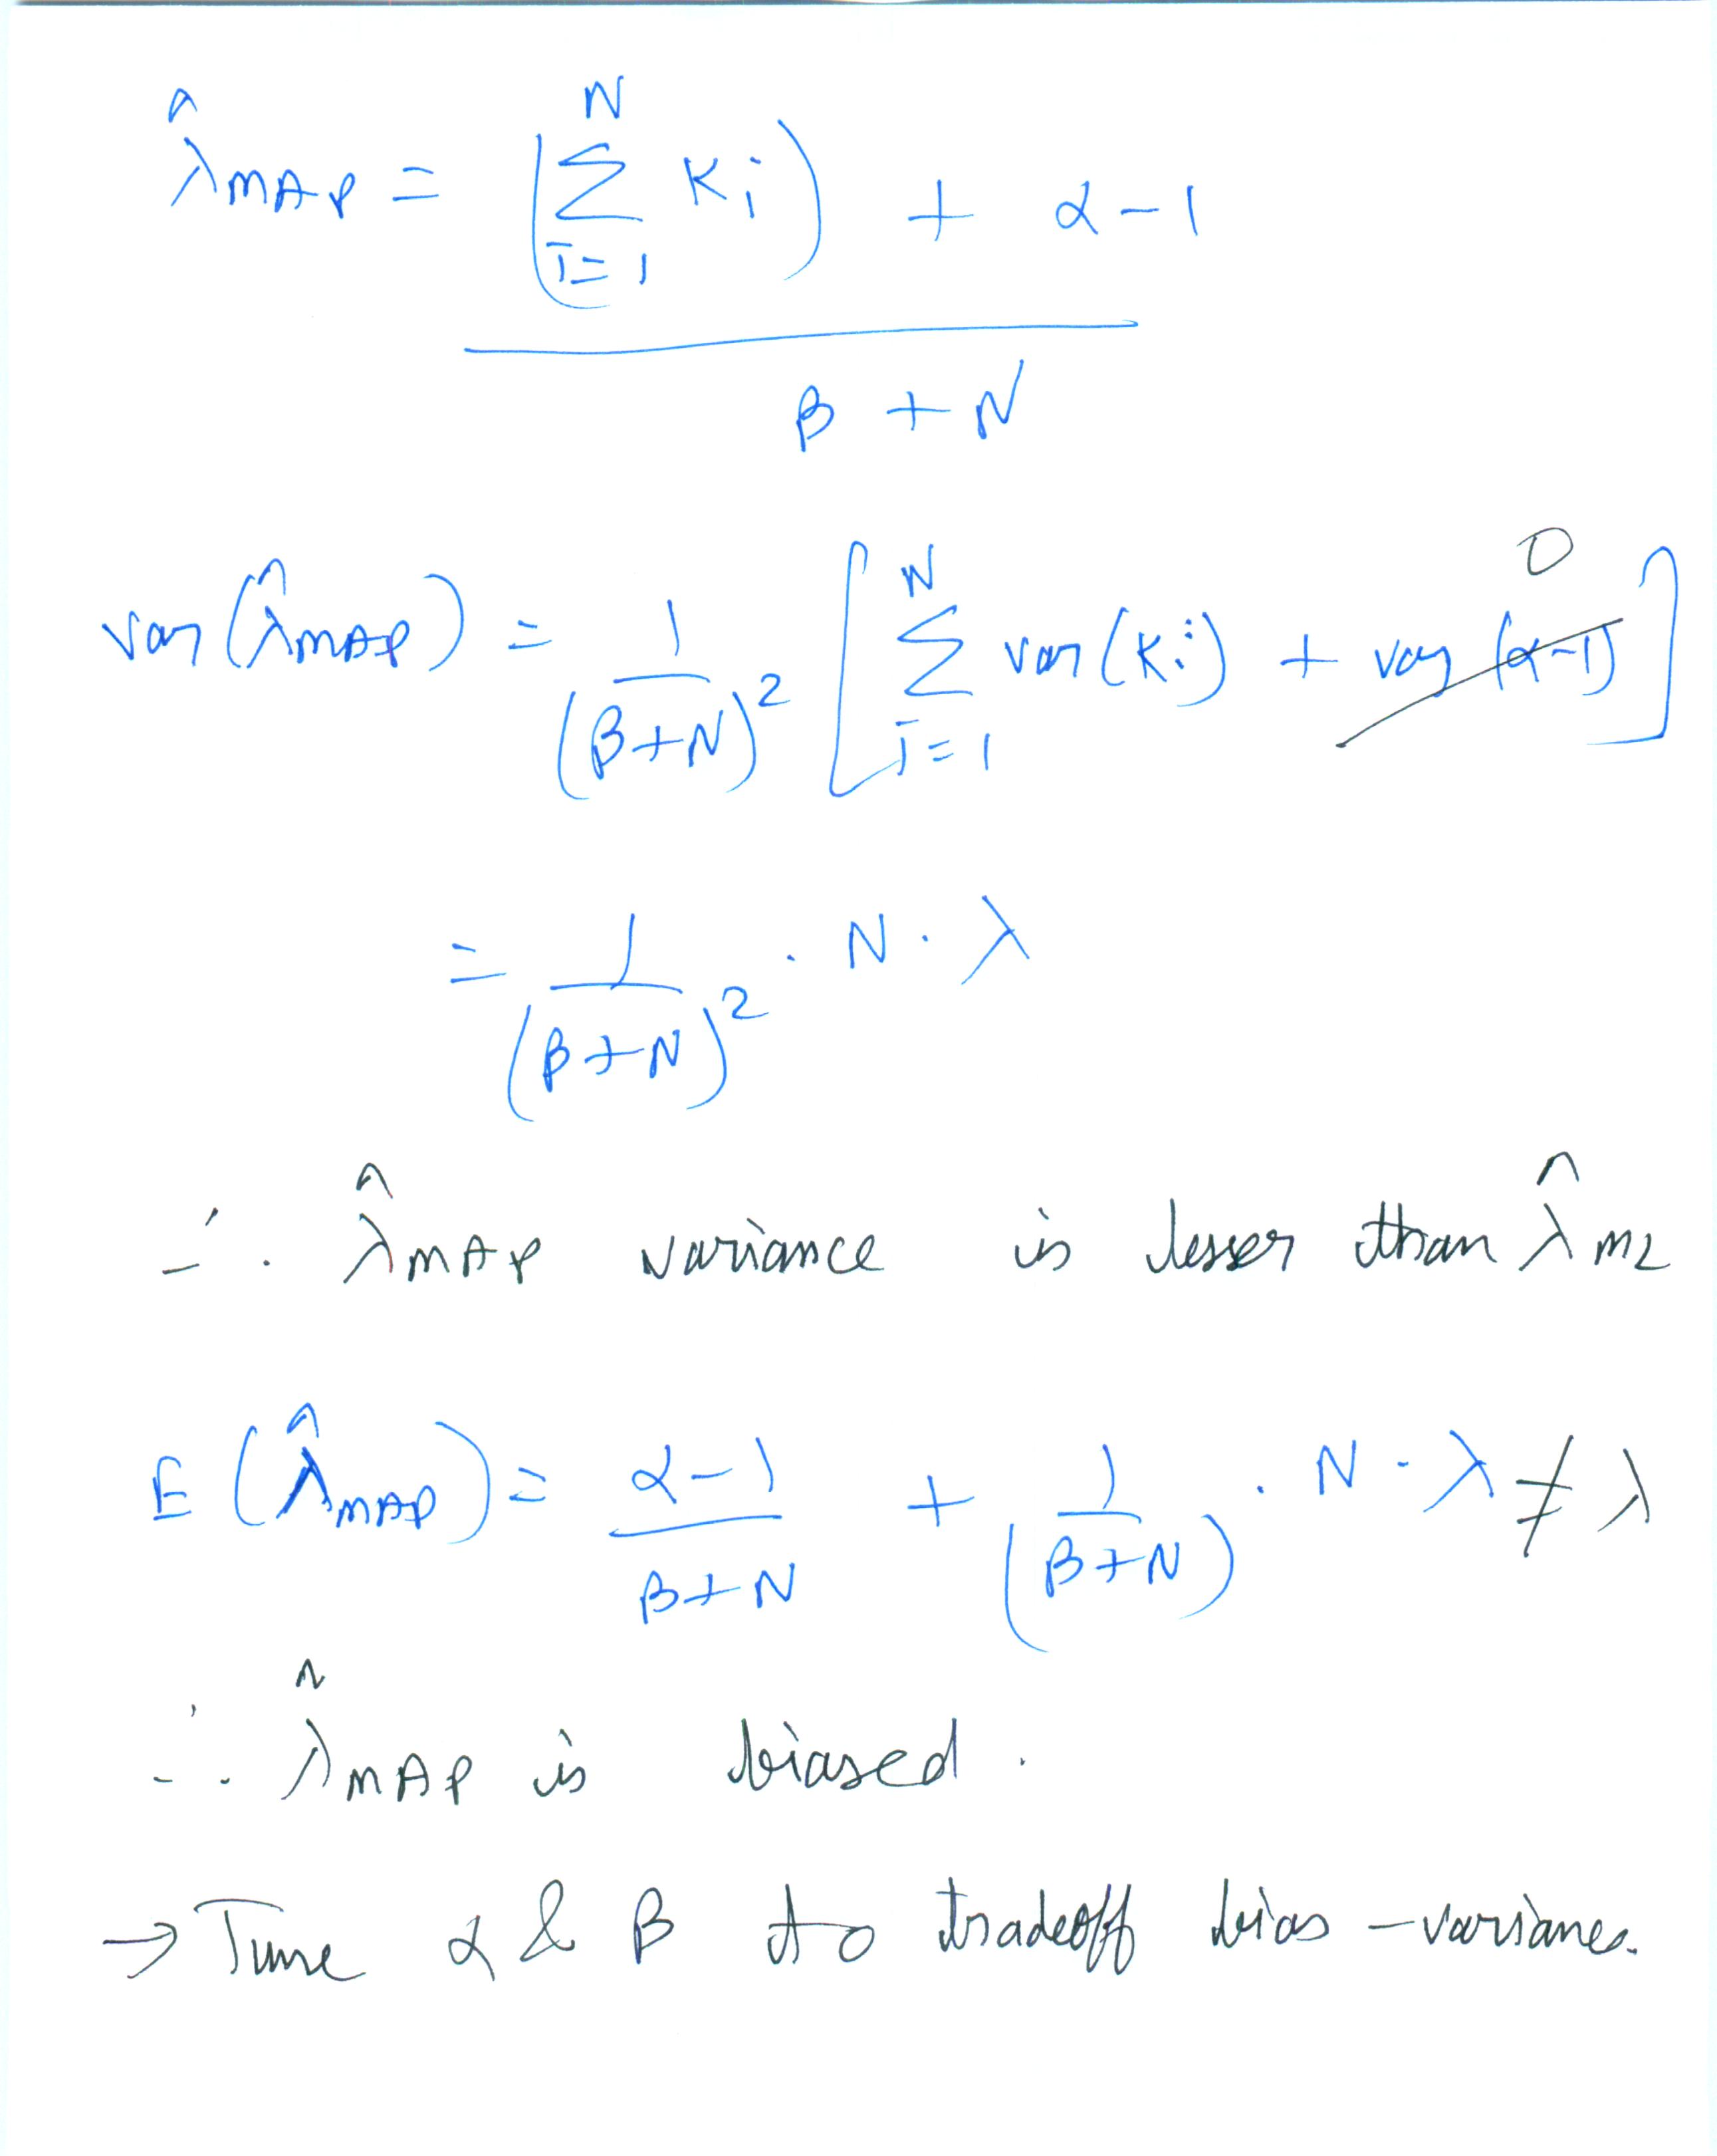 λ̂_MAP = (Σ_{i=1}^{N} K_i) + α - 1
β + N
var(λ̂_MAP) = 1/(β+N)² [Σ_{i=1}^{N} var(K_i) + var(α-1) 0]
= 1/(β+N)² · N · λ
∴ λ̂_MAP variance is lesser than λ̂_ML
E(λ̂_MAP) = (α-1)/(β+N) + 1/(β+N) · N · λ ≠ λ
∴ λ̂_MAP is biased.
→ Tune α & β to tradeoff bias-variance.